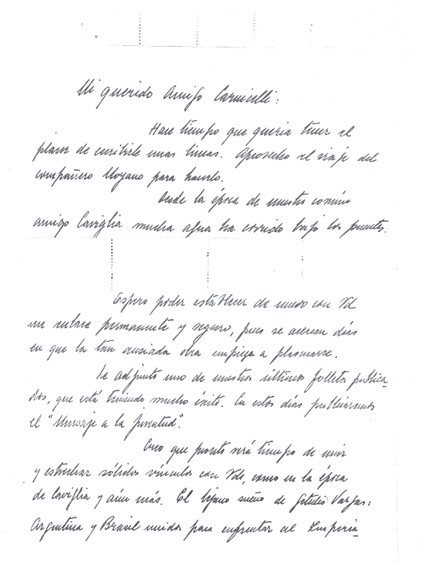 Mi querido Amigo Carnicelli:
Hace tiempo que quería tener el
placer de escribirle unas líneas. Aprovecho el viaje del
compañero Moyano para hacerlo.
Desde la época de nuestro común
amigo Caviglia mucha agua ha corrido bajo los puentes.
Espero poder establecer de nuevo con Vd
un enlace permanente y seguro, pues se acercan días
en que la tan ansiada obra empieza a plasmarse.
Le adjunto uno de nuestros últimos folletos publica-
dos, que está teniendo mucho éxito. En estos días publicaremos
el "Mensaje a la Juventud".
Creo que pronto será tiempo de unir
y estrechar sólidos vínculos con Vds, como en la época
de Caviglia y aún más. El lejano sueño de Getulio Vargas:
Argentina y Brasil unidos para enfrentar al Imperia-